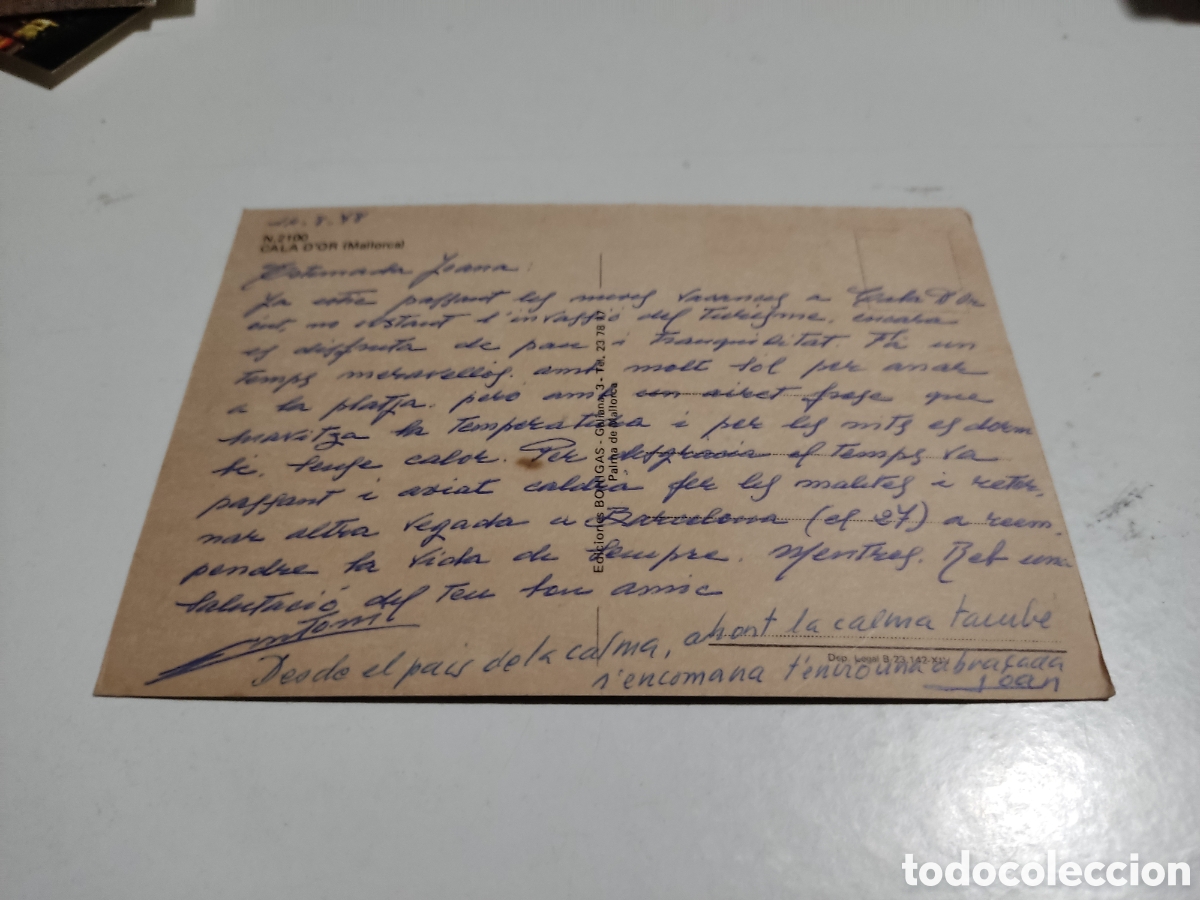 8. 88
N.2100
CALA D'OR (Mallorca)
Estimada Joana:
Ja estic passant les meves vacances a Cala D'Or
on, no obstant l'invassió del turisme, encara
es disfruta de pau i tranquilitat. Fa un
temps meravellos, amb molt sol per anar
a la platja, pero amb un airet fresc que
suavitza la temperatura i per les nits es dorm
bé, sense calor. Per desgracia el temps va
passant i aviat caldrà fer les maletes i retor-
nar altra vegada a Barcelona (el 27) a reem-
pendre la vida de sempre. Mentres. Reb una
salutació del teu bon amic
Antoni
Desde el pais de la calma, ahont la calma també
s'encomana t'envio una abraçada
Joan
Ediciones BOHIGAS - 3 - Tel. 23 78 17
Palma de Mallorca
Dep. Legal B 23.142-XIV
todocoleccion